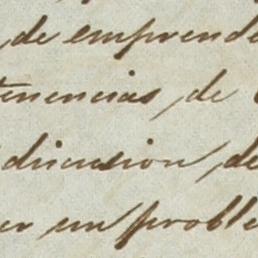 , de emprende
tenencias, de
discusion, de
er un proble